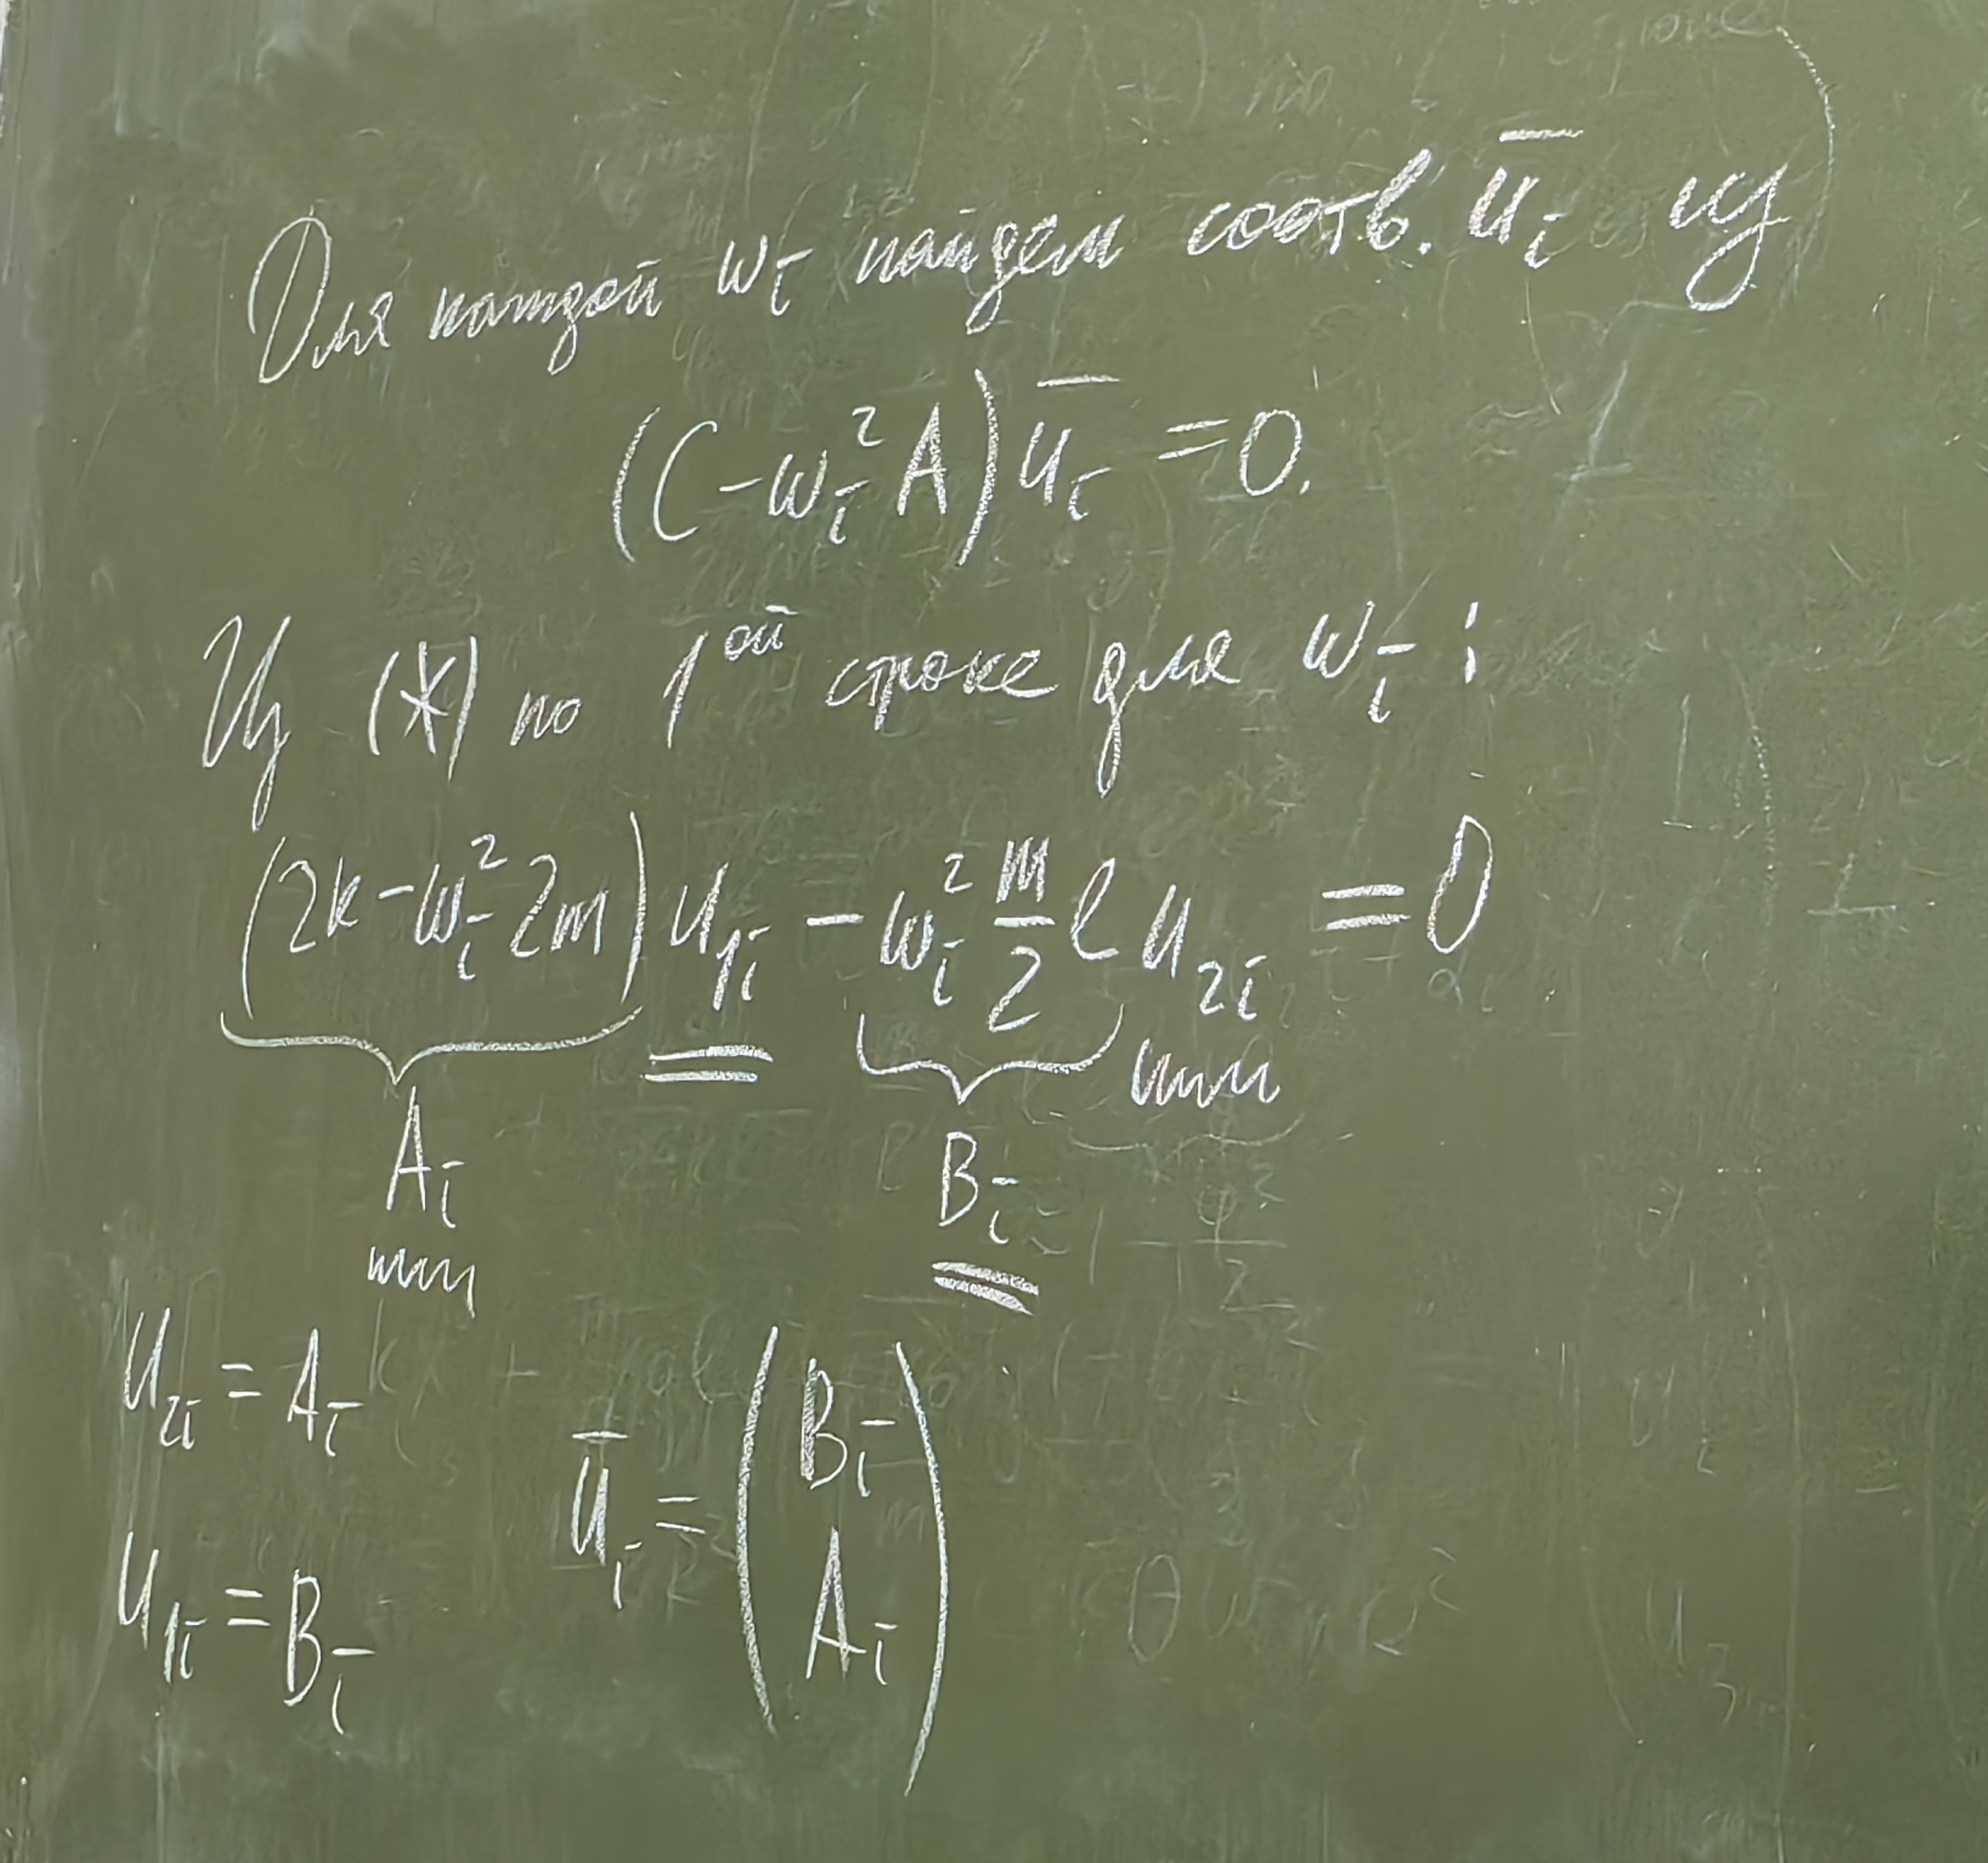 Для каждой ωᵢ найдем соотв. ūᵢ из
(C - ωᵢ² A) ūᵢ = 0.
Из (*) по 1ой строке для ωᵢ :
(2k - ωᵢ² 2m) u₁ᵢ - ωᵢ² m/2 ℓ u₂ᵢ = 0
Aᵢ Bᵢ
u₂ᵢ = Aᵢ
u₁ᵢ = Bᵢ
ūᵢ = (Bᵢ
Aᵢ)